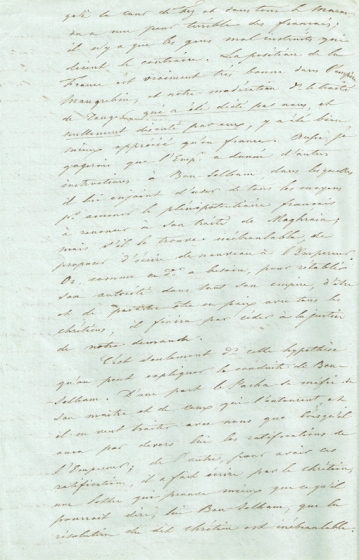 golé le coeur de Fez et dans tout le Maroc
on a une peur terrible des français;
il n'y a que les gens mal instruits qui
disent le contraire. La position de la
France est vraiment très bonne dans l'empire
Maugrebin, et notre modération de le traité
de Tanger qui a été dicté par nous, et
nullement discuté par eux, y a été bien
mieux apprécié qu'en france. Aussi je
gagerais que l'Emp.r a donné d'autres
instructions à Bou-Selham, dans lesquelles
il lui enjoint d'user de tous les moyens
p.r amener le plénipotentiaire français
à renoncer à son traité de Maghrnia;
mais s'il le trouve inébranlable de
proposer d'écrire de nouveau à l'Empereur.
Or, comme a besoin, pour rétablir
son autorité dans tout son empire, d'être
et de en paix avec tous les
chrétiens, il finira par céder à la justice
de notre demande.
C'est seulement d'après cette hypothèse
qu'on peut expliquer la conduite de Bou-
Selham. D'une part le Pacha se méfie de
son maître et de ceux qui l'entourent, et
il ne veut traiter avec nous que lorsqu'il
aura par devers lui les ratifications de
l'Empereur; de l'autre, pour avoir ces
ratifications, il a fait écrire par le chrétien
une lettre qui prouve mieux que ce qu'il
pourrait dire, lui Bou-Selham, que la
résolution du dit chrétien est inébranlable.